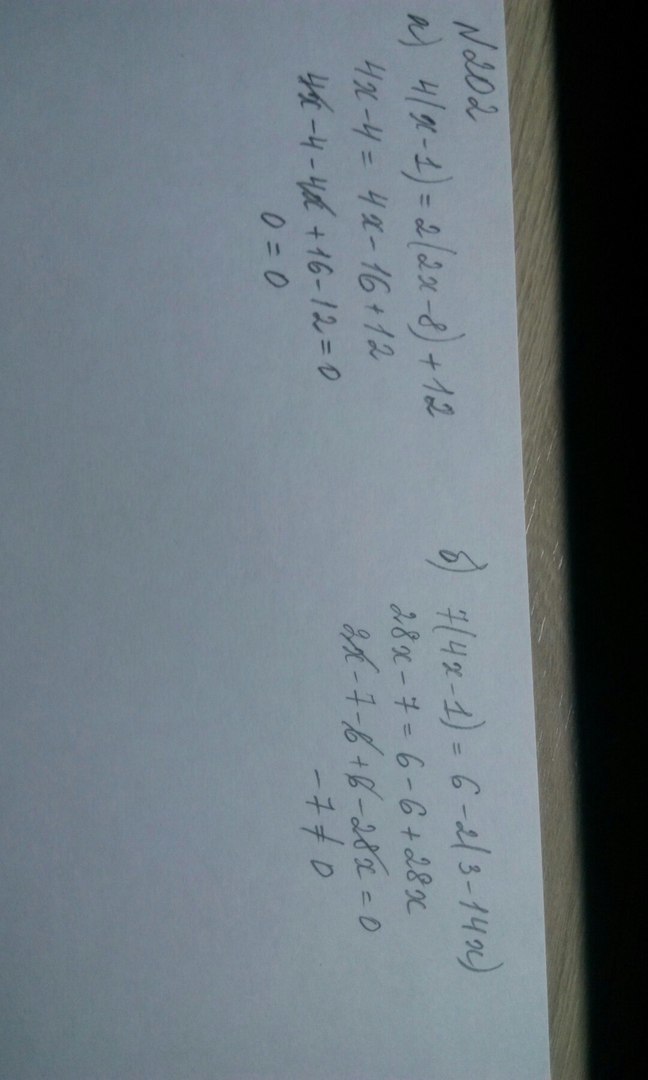 N202
а) 4(x-1)=2(2x-8)+12
4x-4=4x-16+12
4x-4-4x+16-12=0
0=0
б) 7(4x-1)=6-2(3-14x)
28x-7=6-6+28x
2x-7-6+6-28x=0
-7≠0